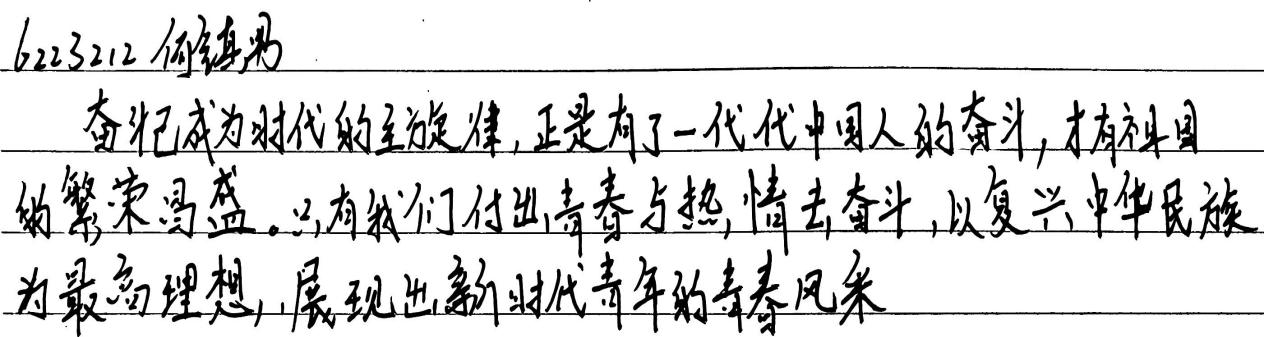 6223212 何镇勋
奋斗已成为时代的主旋律,正是有了一代代中国人的奋斗,才有祖国
的繁荣昌盛。只有我们付出青春与热情去奋斗,以复兴中华民族
为最高理想,展现出新时代青年的青春风采